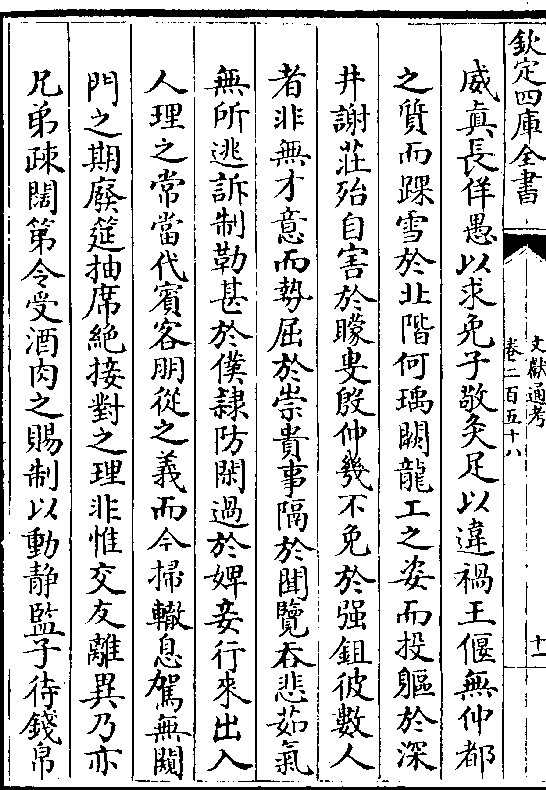 欽定四庫全書
文獻通考
卷二百五十八
十一
威真長佯愚以求免子敬灸足以違禍王偃無仲都
之質而踝雪於北階何瑀闕龍工之姿而投軀於深
井謝莊殆自害於矇叟殷仲幾不免於强鉏彼數人
者非無才意而勢屈於崇貴事隔於聞覽吞悲茹氣
無所逃訴制勒甚於僕隸防閑過於婢妾行來出入
人理之常當代賓客朋從之義而今掃轍息駕無闚
門之期廢筵抽席絶接對之理非惟交友離異乃亦
兄弟疎闊第令受酒肉之賜制以動静監子待錢帛